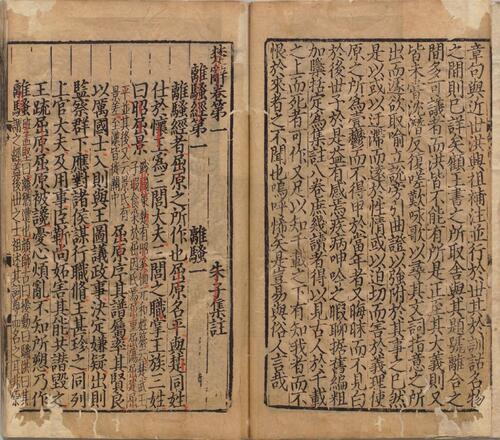 章句與近世洪興祖補注並行於世其於訓詁名物
之間則已詳矣顧王書之所取舍與其題號離合之
間多可議者而洪皆不能有所是正至其大義則又
皆未嘗沈潛反復嗟歎咏歌以尋其文詞指意之所
出而遽欲取喻立說旁引曲證以強附於其事之已然
是以或以迂滯而遠於性情或以迫切而害於義理使
原之所為壹鬱而不得申於當年者又晦昧而不見白
於後世予於是益有感焉疾病呻吟之暇聊據舊編粗
加櫽括定為集註八卷庶幾讀者得以見古人於千載
之上而死者可作又足以知千載之下有知我者而不
恨於來者之不聞也嗚呼悕矣是豈易與俗人言哉
楚辭卷第一 朱子集註
離騷經第一 離騷一
離騷經者屈原之所作也屈原名平與楚同姓
仕於懷王為三閭大夫三閭之職掌王族三姓
曰昭屈景 屈原序其譜屬率其賢良
以厲國士入則與王圖議政事決定嫌疑出則
監察群下應對諸侯謀行職脩王甚珍之同列
上官大夫及用事臣靳尚妬害其能共譖毀之
王疏屈原屈原被讒憂心煩亂不知所愬乃作
離騷